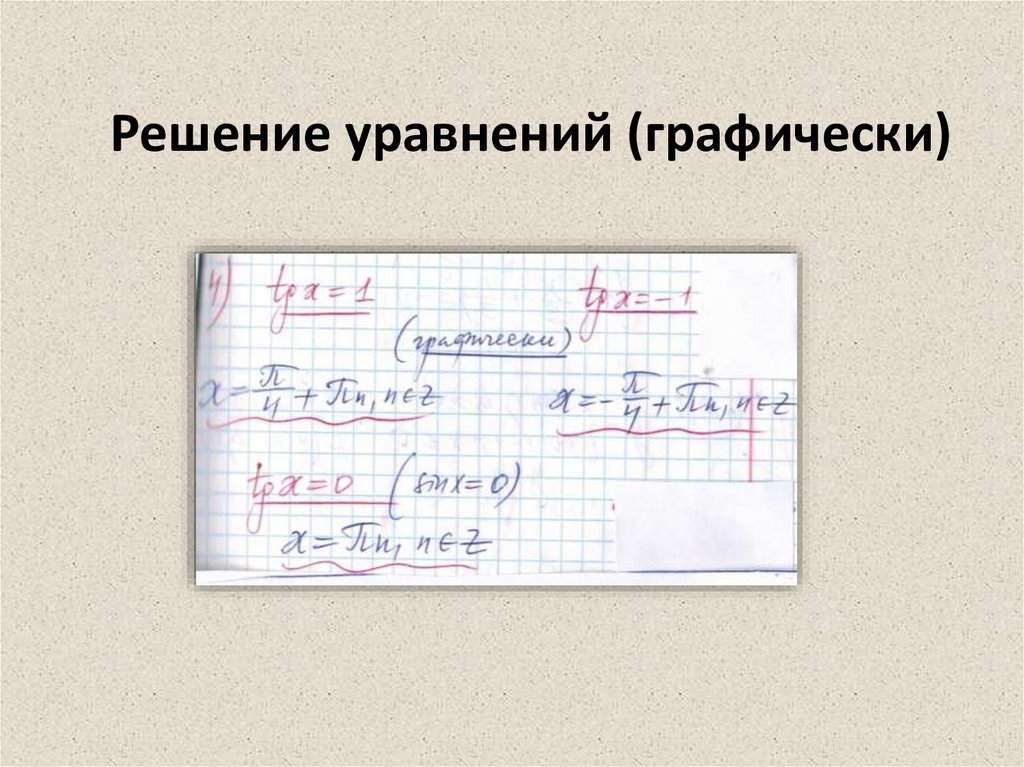 Решение уравнений (графически)
4) tg x = 1 tg x = -1
(графически)
x = π/4 + πn, n ∈ Z x = - π/4 + πn, n ∈ Z
tg x = 0 (sin x = 0)
x = πn, n ∈ Z